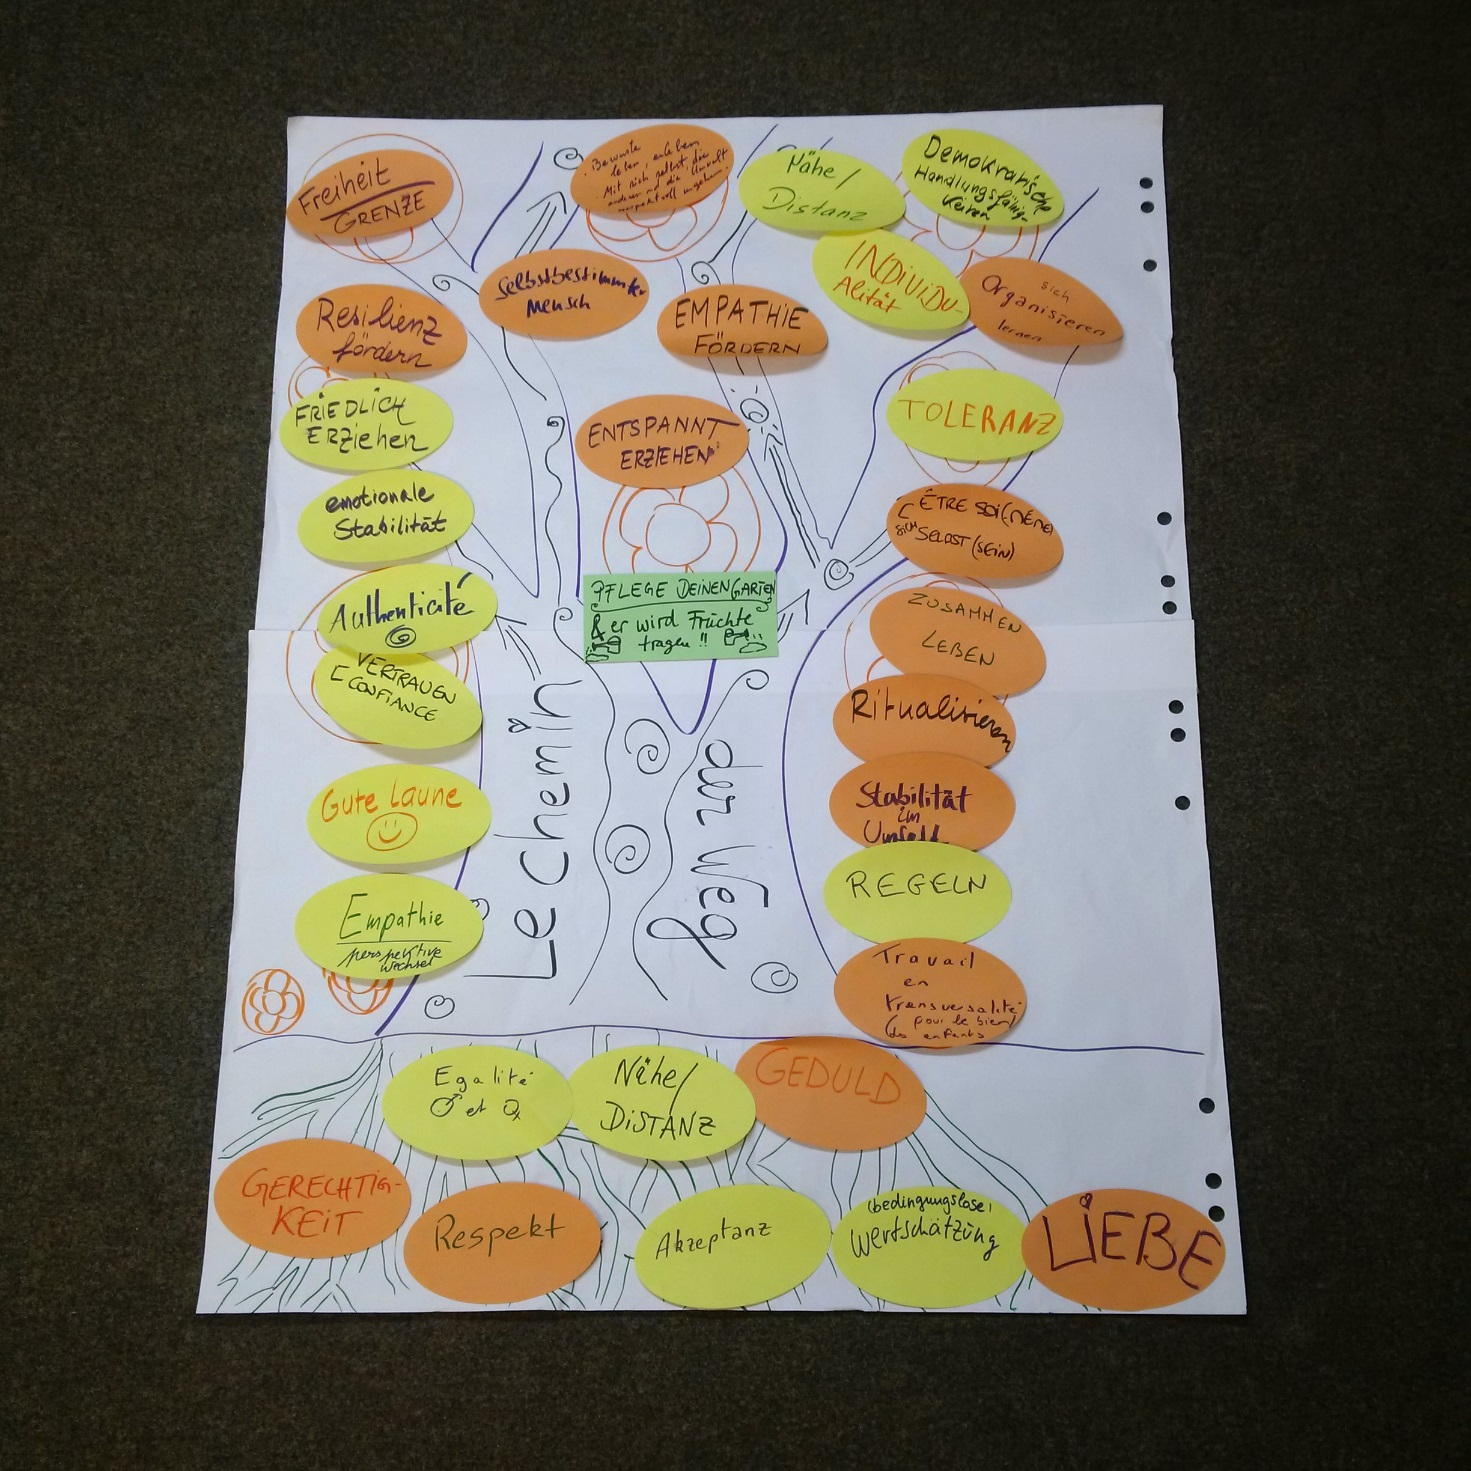 Freiheit
GRENZE
Bewusste
leben, erleben
Mit sich selbst, die
anderen und die Umwelt
respektvoll umgehen.
Nähe/
Distanz
Demokratische
Handlungsfähig-
keiten
Selbstbestimmter
Mensch
INDIVIDU-
Alität
sich
Organisieren
lernen
Resilienz
fördern
EMPATHIE
FÖRDERN
FRIEDLICH
ERZiehen
ENTSPANNT
ERZIEHEN
TOLERANZ
emotionale
Stabilität
ÊTRE SOI(MÊME)
SICH SELBST (SEIN)
Authenticité
PFLEGE DEINEN GARTEN
& er wird Früchte
tragen !!
ZUSAMMEN
LEBEN
VERTRAUEN
CONFIANCE
Ritualisieren
Le Chemin
der Weg
Gute Laune
Stabilität
im
Umfeld
REGELN
Empathie
perspektive
wechsel
Travail
en
transversalité
(pour le bien)
des enfants
Egalité
♂ et ♀
Nähe/
DiSTANZ
GEDULD
GERECHTIG-
KEiT
Respekt
Akzeptanz
(bedingungslose)
Wertschätzung
LiEBE